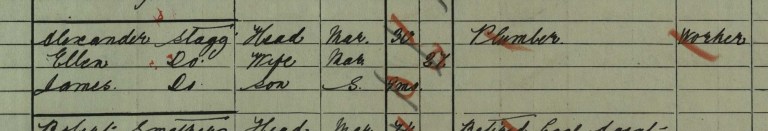 Alexander Stagg Head Mar. 30 Plumber. Worker
Ellen Do. Wife Mar 31
James Do Son S. 9mo.
Robert Smothers Head Mar. Retired Coal